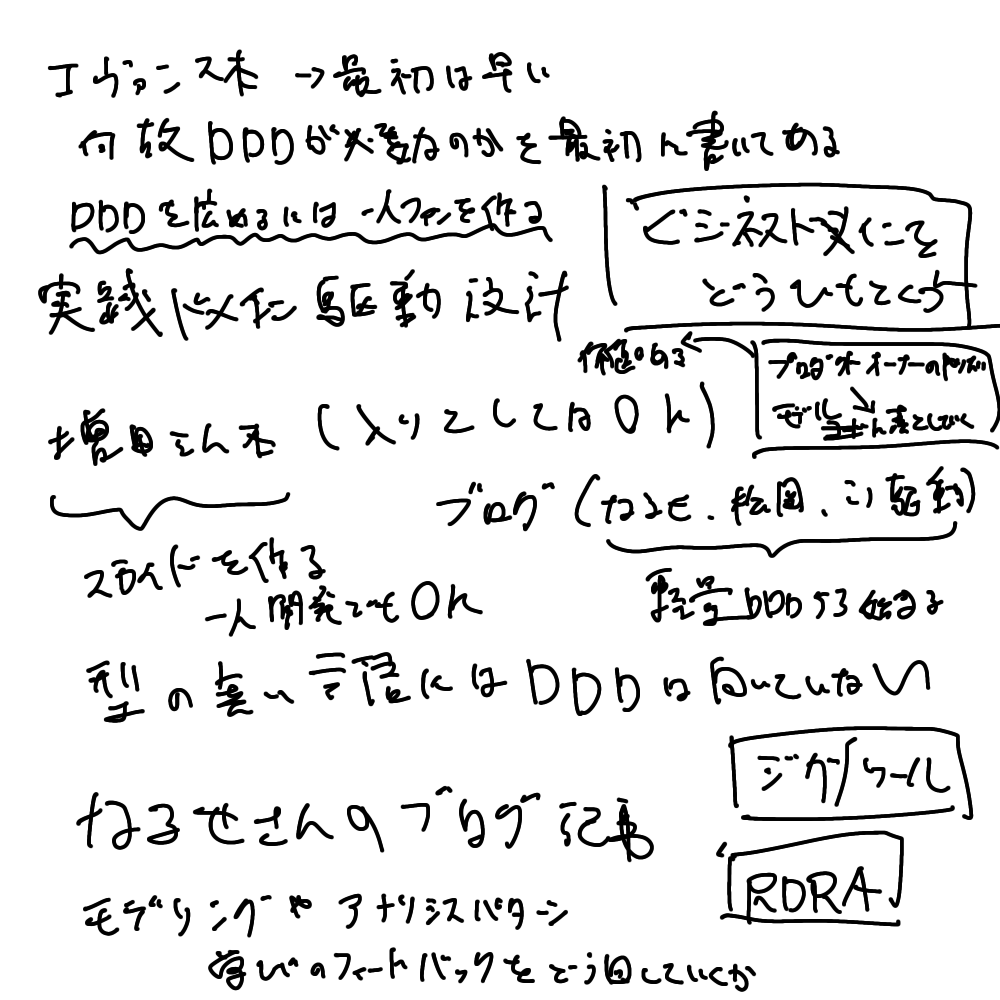 エヴァンス本 →最初は早い
何故DDDが必要なのかを最初に書いてある
DDDを広めるには一人ファンを作る
ビジネスドメインを
どうひもとくか
実践ドメイン駆動設計
価値のある
プロダクトオーナーの
モデル に落としていく
増田さん本 (入りとしてはOK)
ブログ(なるせ、松岡、 駆動)
スライドを作る
一人開発でもOK
軽量DDDから始まる
型の無い言語にはDDDは向いていない
ジグソール
なるせさんのブログ記事
RDRA
モデリングやアナリシスパターン
学びのフィードバックをどう回していくか